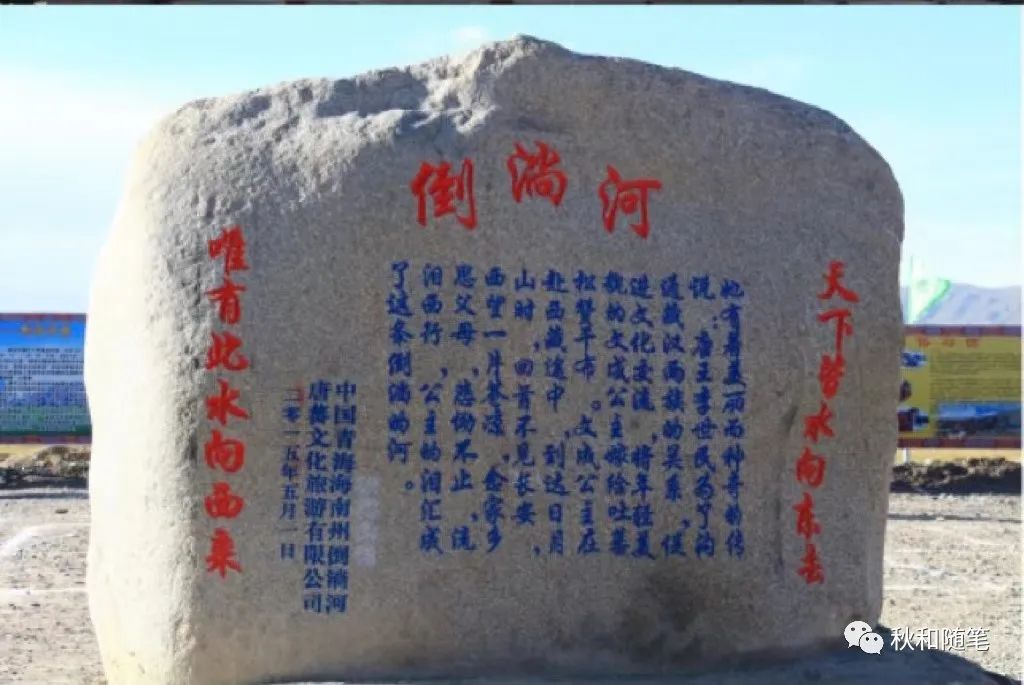 倒淌河
天下皆水向东去
她有着美丽而神奇的传
说：唐王李世民为了沟
通藏汉两族的关系，促
进文化交流，将年轻美
貌的文成公主嫁给吐蕃
松赞干布。文成公主在
赴西藏途中，到达日月
山时，回首不见长安，
西望一片苍凉，念家乡
思父母，悲恸不止，流
泪西行，公主的泪汇成
了这条倒淌的河。
中国青海海南州倒淌河
唐蕃文化旅游有限公司
二零一五年五月一日
唯有此水向西来
秋和随笔